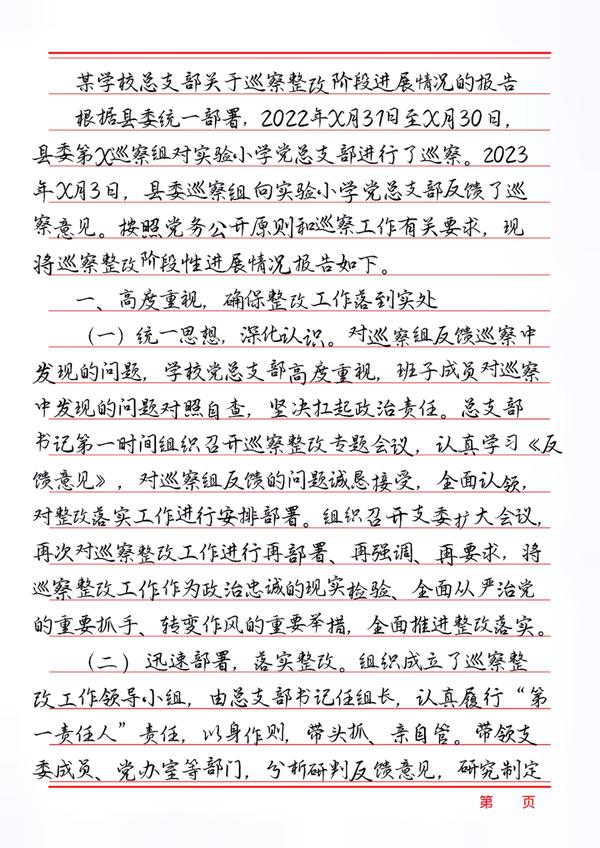 某学校总支部关于巡察整改阶段进展情况的报告
根据县委统一部署，2022年X月31日至X月30日，
县委第X巡察组对实验小学党总支部进行了巡察。2023
年X月3日，县委巡察组向实验小学党总支部反馈了巡
察意见。按照党务公开原则和巡察工作有关要求，现
将巡察整改阶段性进展情况报告如下。
一、高度重视，确保整改工作落到实处
（一）统一思想，深化认识。对巡察组反馈巡察中
发现的问题，学校党总支部高度重视，班子成员对巡察
中发现的问题对照自查，坚决扛起政治责任。总支部
书记第一时间组织召开巡察整改专题会议，认真学习《反
馈意见》，对巡察组反馈的问题诚恳接受，全面认领，
对整改落实工作进行安排部署。组织召开支委扩大会议，
再次对巡察整改工作进行再部署、再强调、再要求，将
巡察整改工作作为政治忠诚的现实检验、全面从严治党
的重要抓手、转变作风的重要举措，全面推进整改落实。
（二）迅速部署，落实整改。组织成立了巡察整
改工作领导小组，由总支部书记任组长，认真履行“第
一责任人”责任，以身作则，带头抓、亲自管。带领支
委成员、党办室等部门，分析研判反馈意见，研究制定
第 页